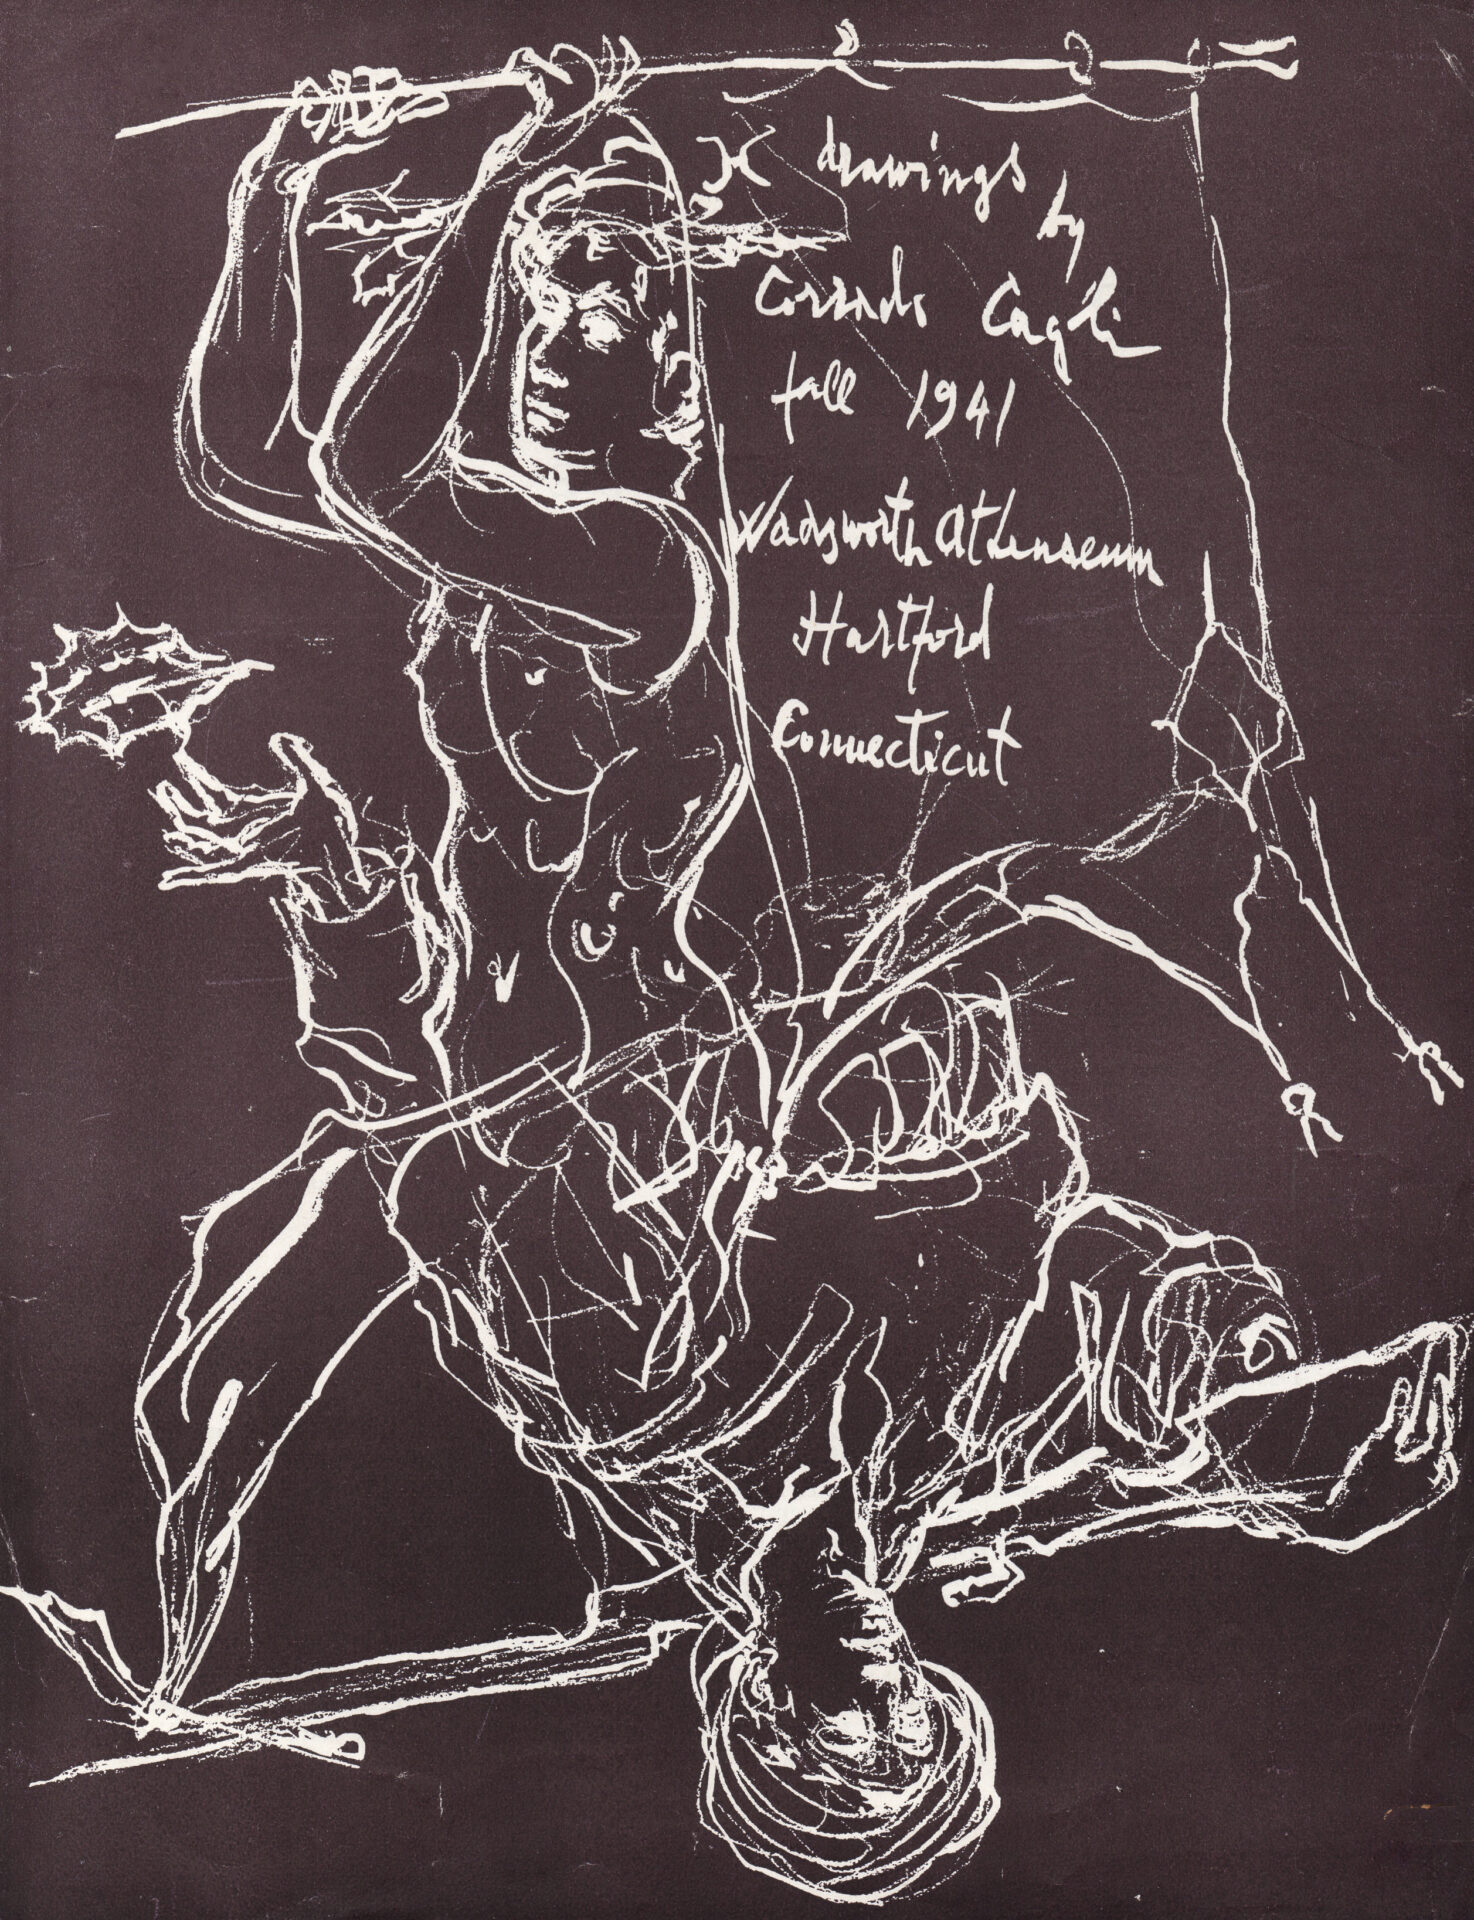 drawings
by
Corrado Cagli
fall 1941
Wadsworth Athenaeum
Hartford
Connecticut